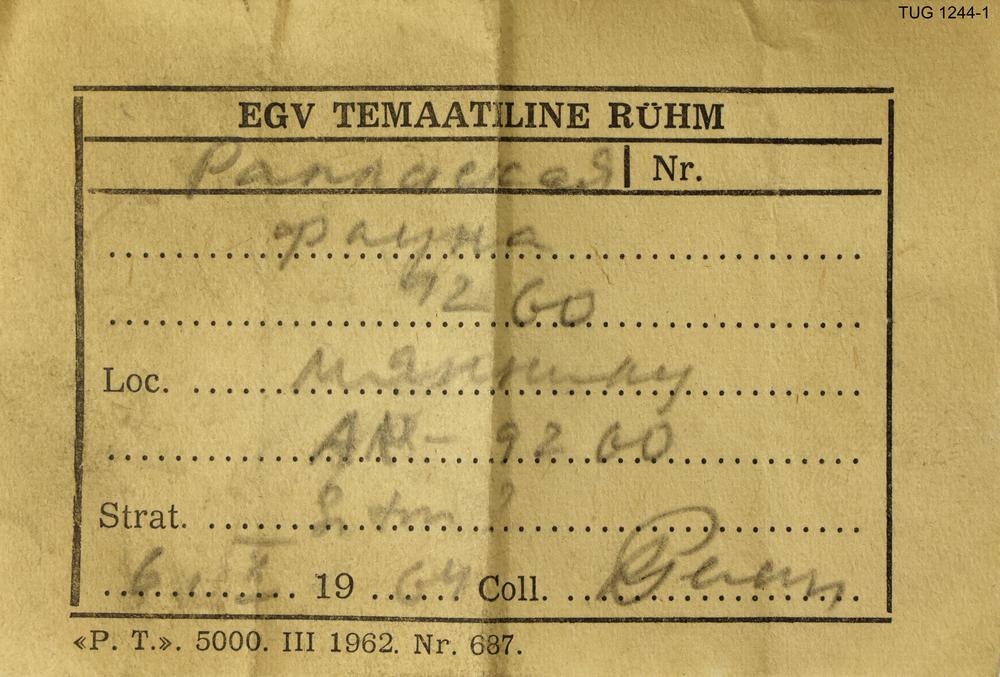 TUG 1244-1
EGV TEMAATILINE RÜHM
Раплаская Nr.
фауна
9260
Loc. Мяннику
АК- 9260
Strat.
6. X 19 64 Coll.
«P. T.». 5000. III 1962. Nr. 687.